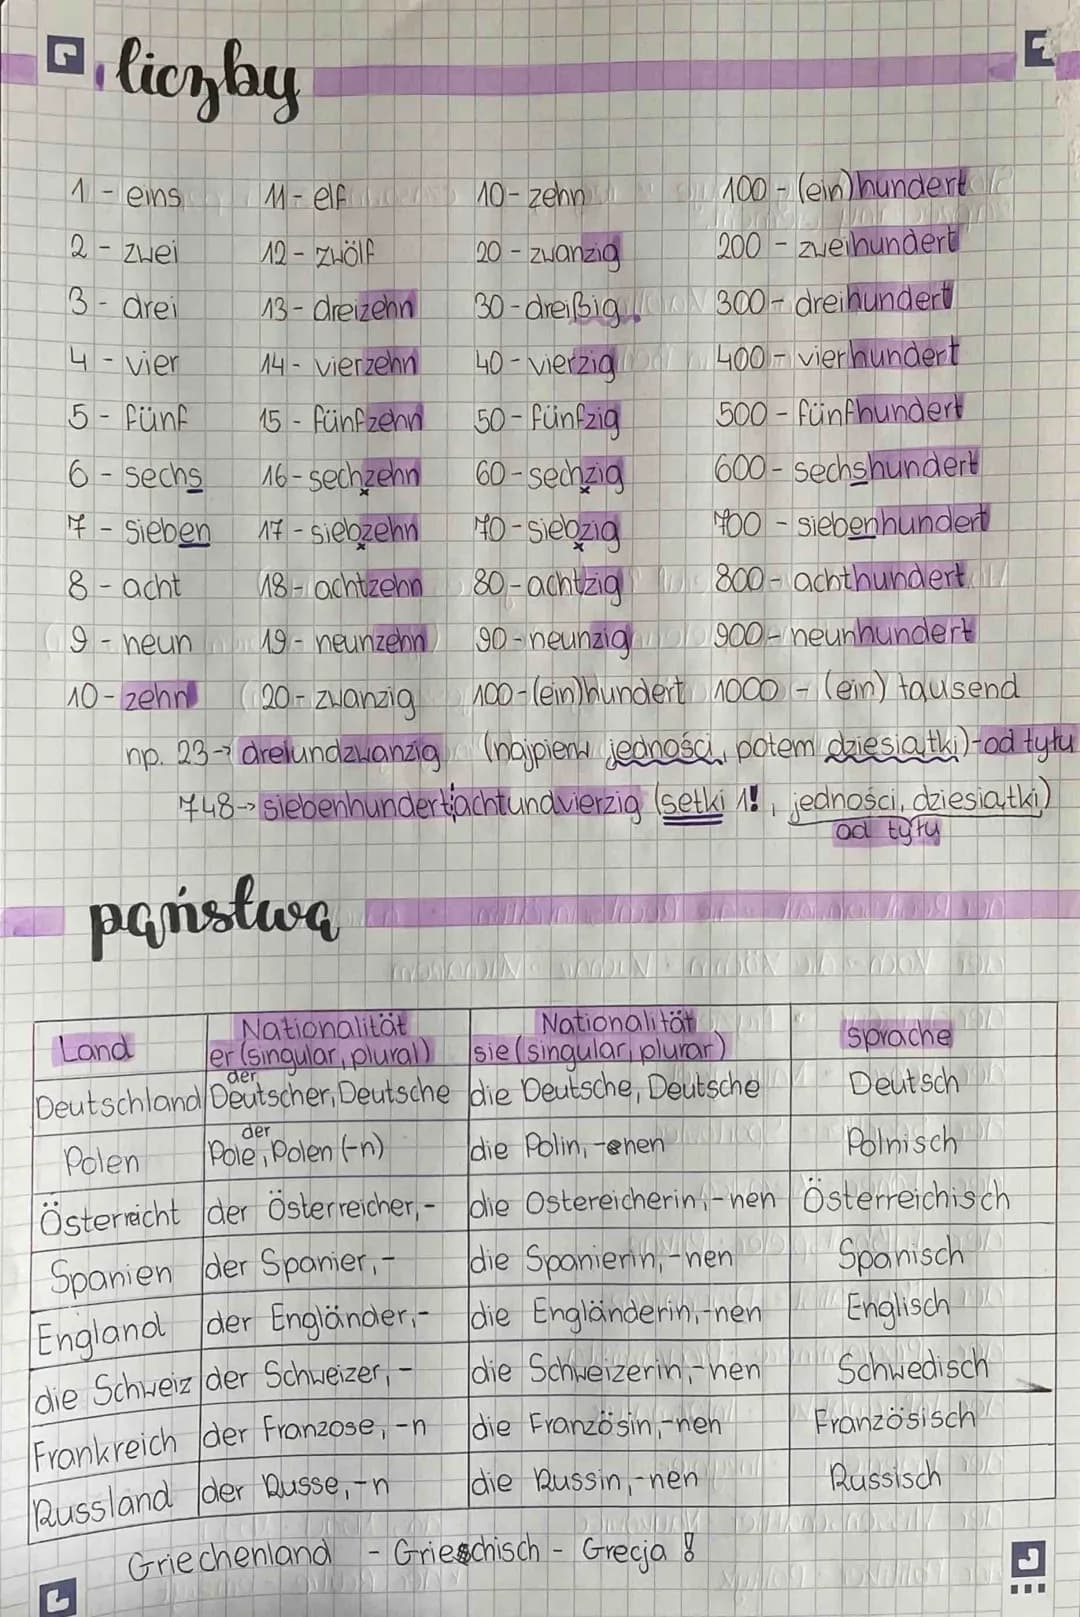 liczby
1 - eins 11 - elf 10 - zehn 100 - (ein)hundert
2 - zwei 12 - zwölf 20 - zwanzig 200 - zweihundert
3 - drei 13 - dreizehn 30 - dreißig 300 - dreihundert
4 - vier 14 - vierzehn 40 - vierzig 400 - vierhundert
5 - fünf 15 - fünfzehn 50 - fünfzig 500 - fünfhundert
6 - sechs 16 - sechzehn 60 - sechzig 600 - sechshundert
7 - sieben 17 - siebzehn 70 - siebzig 700 - siebenhundert
8 - acht 18 - achtzehn 80 - achtzig 800 - achthundert
9 - neun 19 - neunzehn 90 - neunzig 900 - neunhundert
10 - zehn 20 - zwanzig 100 - (ein)hundert 1000 - (ein) tausend
np. 23 → dreiundzwanzig (najpierw jedności, potem dziesiątki) - od tyłu
748 → siebenhundert|achtundvierzig (setki 1!, jedności, dziesiątki)
od tyłu
państwa
Land Nationalität er (singular, plural) Nationalität sie (singular, plurar) sprache
Deutschland der Deutscher, Deutsche die Deutsche, Deutsche Deutsch
Polen der Pole, Polen (-n) die Polin, -enen Polnisch
Österreicht der Österreicher, - die Ostereicherin, -nen Österreichisch
Spanien der Spanier, - die Spanierin, -nen Spanisch
England der Engländer, - die Engländerin, -nen Englisch
die Schweiz der Schweizer, - die Schweizerin, -nen Schwedisch
Frankreich der Franzose, -n die Französin, -nen Französisch
Russland der Russe, -n die Russin, -nen Russisch
Griechenland - Grieschisch - Grecja !